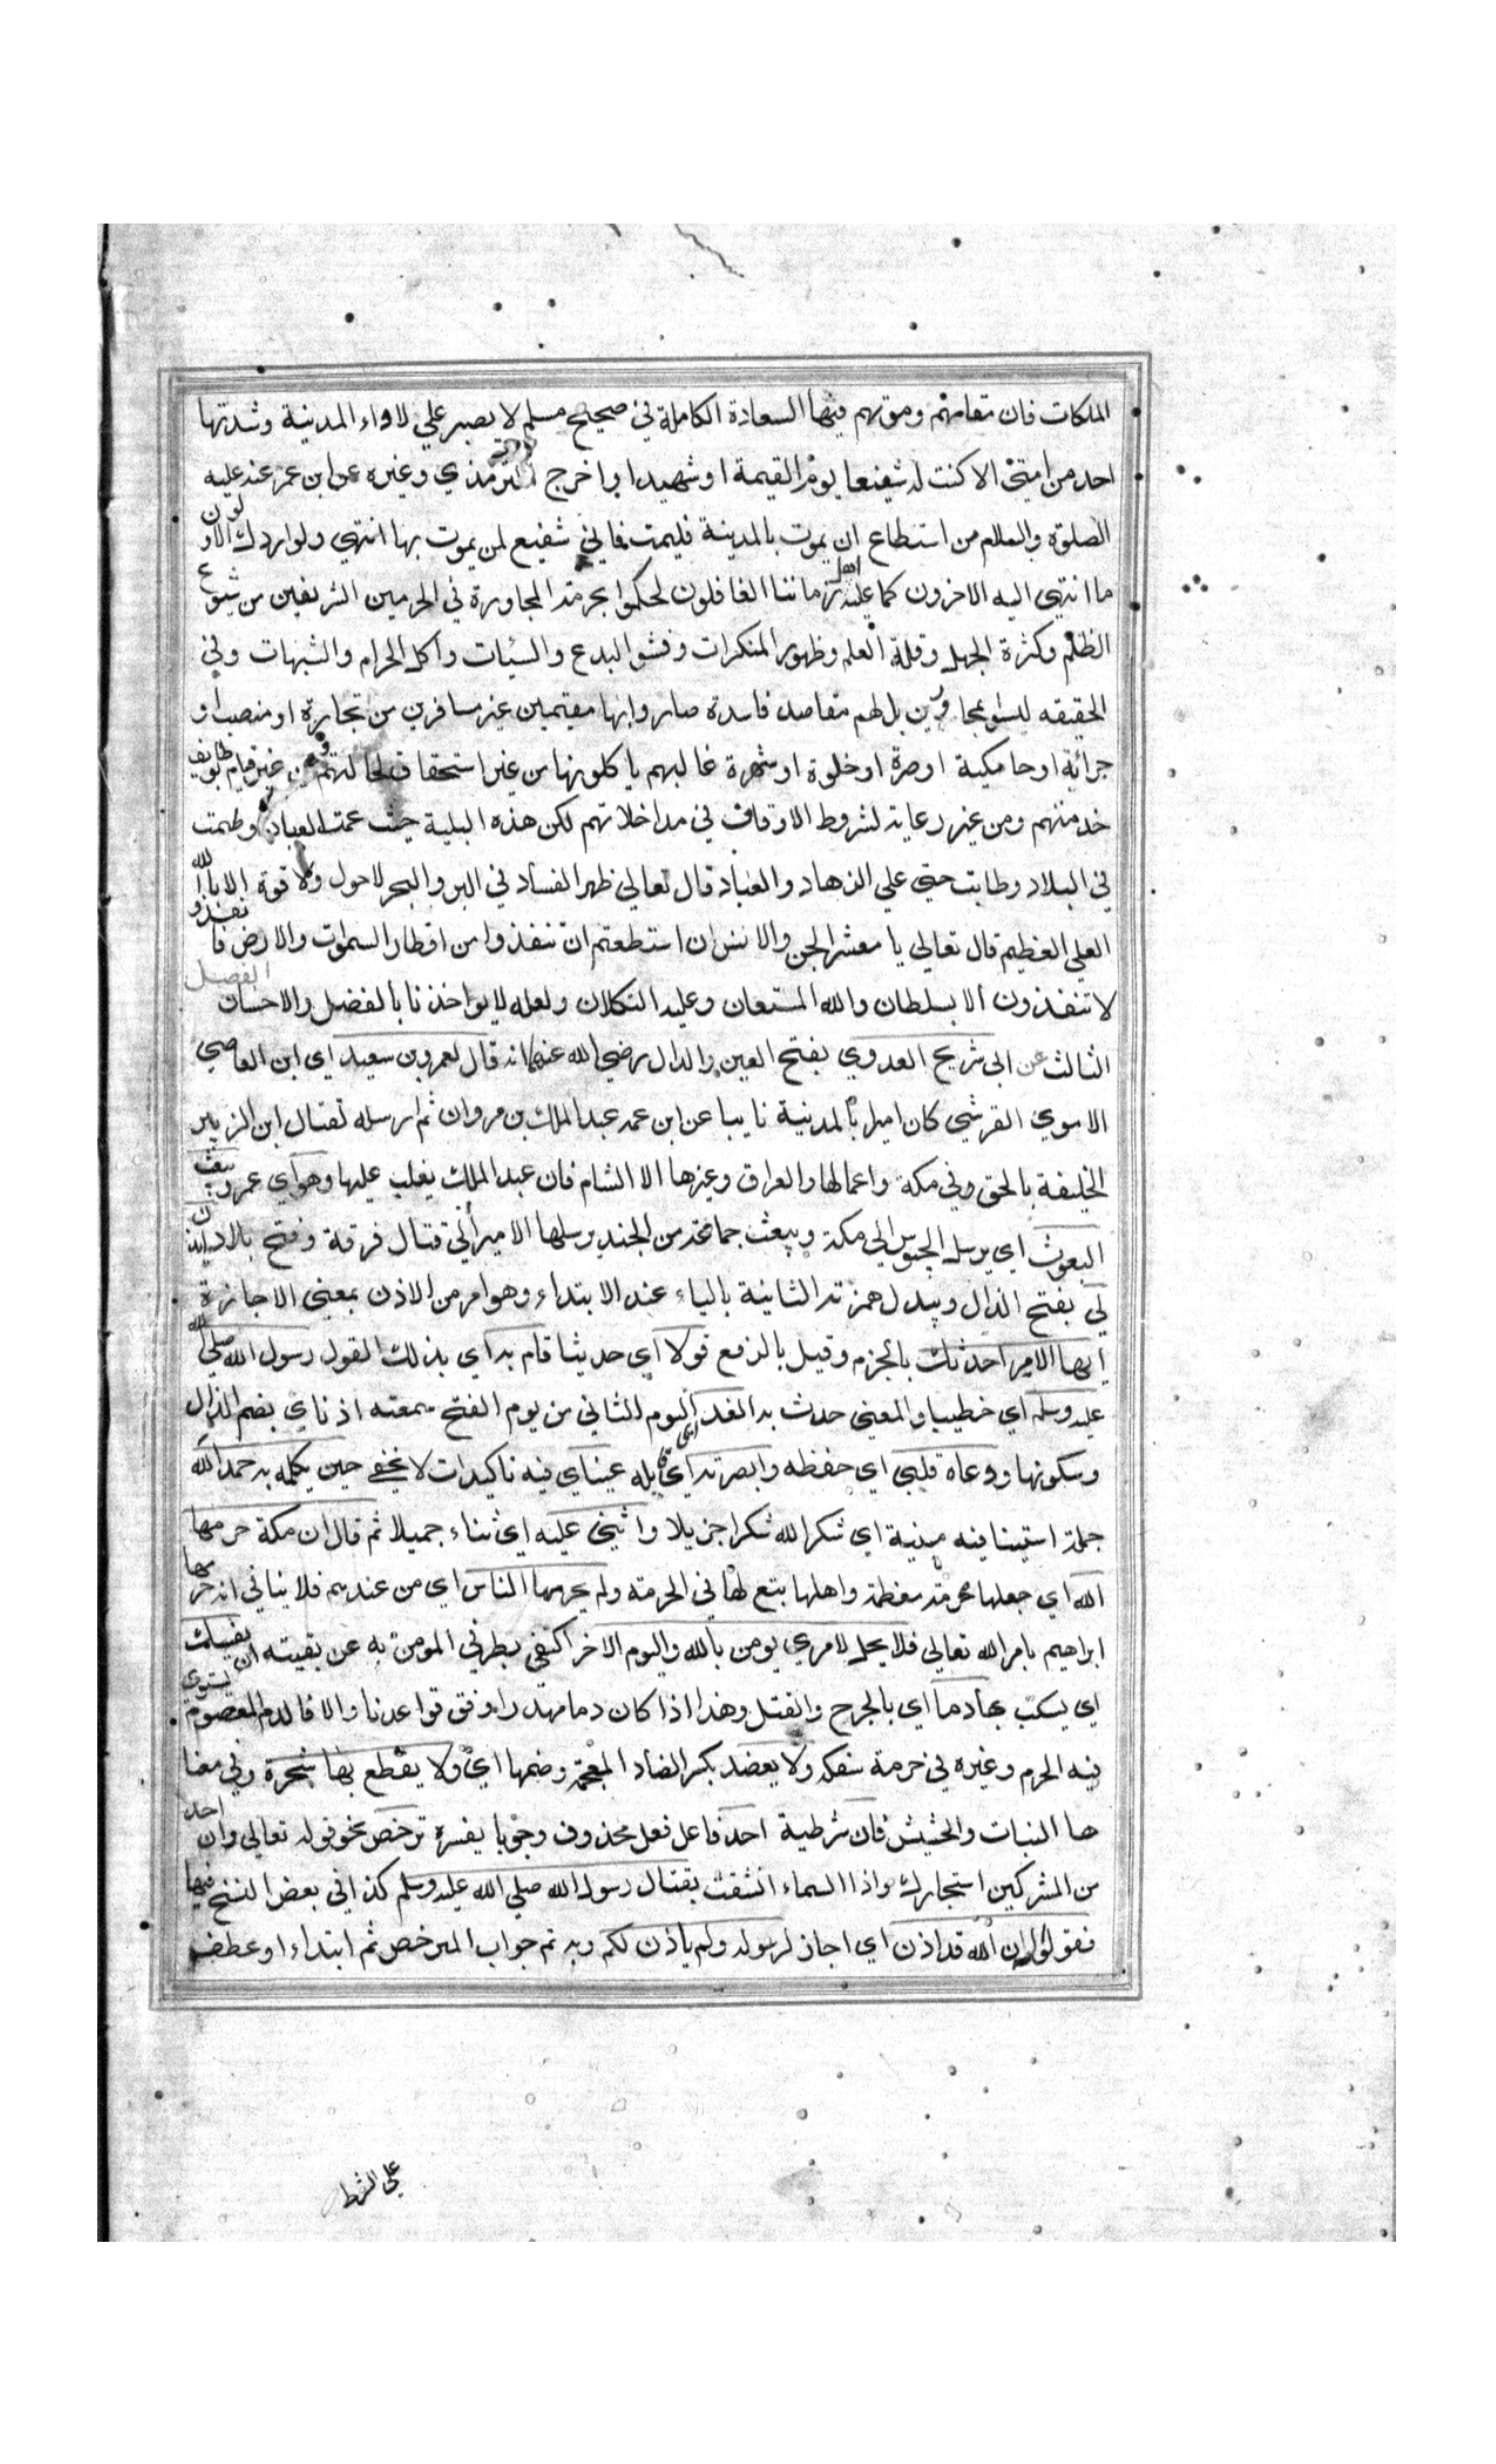 الملكات فان مقامهم وموتهم فيها السعادة الكاملة في صحيح مسلم لا يصبر علي لاواء المدينة وشدتها
احد من امتي الا كنت له شفيعا يوم القيمة او شهيدا واخرج الترمذي وغيره عن ابن عمر عنه عليه
الصلوة والسلام من استطاع ان يموت بالمدينة فليمت فاني شفيع لمن يموت بها انتهي ولو ادرك الاولون
ما انتهي اليه الاخرون كما عليه اهل زماننا الغافلون لحكموا بحرمة المجاورة في الحرمين الشريفين من شيوع
الظلم وكثرة الجهل وقلة العلم وظهور المنكرات وفشو البدع والسيئات واكل الحرام والشبهات وفي
الحقيقه ليسوا بمجاورين بل لهم مقاصد فاسدة صاروا بها مقيمين غير مسافرين من تجارة او منصب او
جراية او جامكية او صرة او خلوة او شهرة غالبهم ياكلونها من غير استحقاق لحالتهم ومن غير قيام بوظايف
خدمتهم ومن غير رعاية لشروط الاوقاف في مداخلاتهم لكن هذه البلية حيث عمت العباد وطمت
في البلاد وطابت حتي علي الزهاد والعباد قال تعالي ظهر الفساد في البر والبحر لاحول ولا قوة الا بالله
العلي العظيم قال تعالي يا معشر الجن والانس ان استطعتم ان تنفذوا من اقطار السموات والارض فانفذوا
لا تنفذون الا بسلطان والله المستعان وعليه التكلان ولعله لا يواخذنا بالفضل والاحسان الفصل
الثالث عن ابي شريح العدوي بفتح العين والدال رضي الله عنه انه قال لعمرو بن سعيد اي ابن العاصي
الاموي القرشي كان اميرا بالمدينة نايبا عن ابن عمه عبد الملك بن مروان ثم ارسله لقتال ابن الزبير
الخليفة بالحق وفي مكة واعمالها والعراق وغيرها الا الشام فان عبد الملك يغلب عليها وهو اي عمرو يبعث
البعوث اي يرسل الجيوس الي مكة ويبعث جماعة من الجند يرسلها الامير الي قتال فرقة وفتح بلاد ايذن
لي بفتح الذال ويبدل همزته الثانية بالياء عند الابتداء وهو امر من الاذن بمعني الاجازة
ايها الامير احدثك بالجزم وقيل بالرفع قولا اي حديثا قام به اي بذلك القول رسول الله صلي الله
عليه وسلم اي خطيبا والمعني حدث به الغد اي اليوم الثاني من يوم الفتح سمعته اذناي بضم الذال
وسكونها ووعاه قلبي اي حفظه وابصرته اي قايله عيناي فيه تاكيدات لا يخفي حين يكلم به حمد الله
جملة استينافيه مبنية اي شكر الله شكرا جزيلا واثني عليه اي ثناء جميلا ثم قال ان مكة حرمها
الله اي جعلها محرمة معظمة واهلها يتبع لها في الحرمة ولم يحرمها الناس اي من عندهم فلا ينافي انه حرمها
ابراهيم بامر الله تعالي فلا يحل لامري يومن بالله واليوم الاخر اكتفي بطرفي المومن به عن بقيته ان يسفك
اي يسكب بها دما اي بالجرح والقتل وهذا اذا كان دما مهدرا وفق قواعدنا والا فالدم المعصوم يستوي
فيه الحرم وغيره في حرمة سفكه ولا يعضد بكسر الضاد المعجمة وضمها اي ولا يقطع بها شجرة وفي معنا
ها النبات والحشيش فان شرطية احد فاعل فعل محذوف وجوبا يفسره ترخص نحو قوله تعالي وان احد
من المشركين استجارك واذا السماء انشقت بقتال رسول الله صلي الله عليه وسلم كذا في بعض النسخ فيها
فقولوا له ان الله قد اذن اي اجاز لرسوله ولم ياذن لكم وبه تم جواب المرخص ثم ابتداء او عطف
علي الشرط